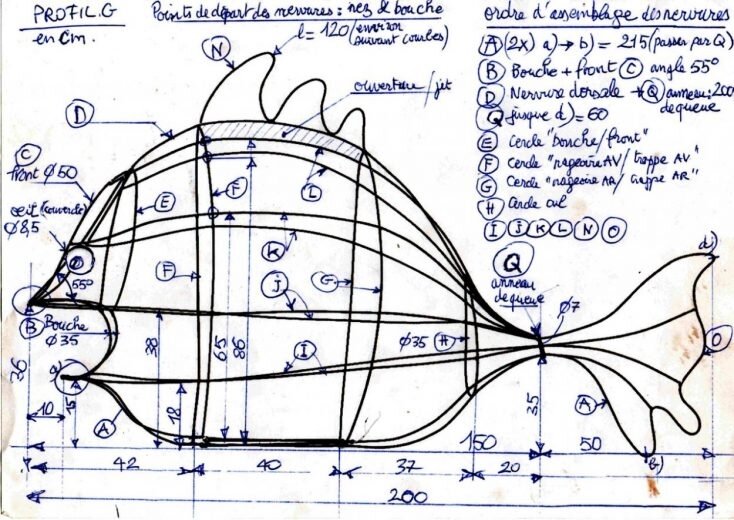 PROFIL.G
en cm.
Points de départ des nervures : nez & bouche
l = 120 /environ
suivant courbes
N
ouverture / jet
D
C
front Ø50
oeil (couvercle)
Ø8,5
O
55°
B
Bouche
Ø35
a)
E
F
F
L
K
J
G
I
H
Ø35
A
A
Q
anneau
de queue
Ø7
d)
O
b)
36
10
15
38
18
65
86
35
150
50
42
40
37
20
200
ordre d'assemblage des nervures
A (2x) a) → b) = 215 (passer par Q)
B Bouche + front C angle 55°
D Nervure dorsale → Q anneau : 200
de queue
Q jusque d) = 60
E Cercle "bouche/front"
F Cercle "nageoire AV / trappe AV"
G Cercle "nageoire AR / trappe AR"
H Cercle cul
I J K L N O